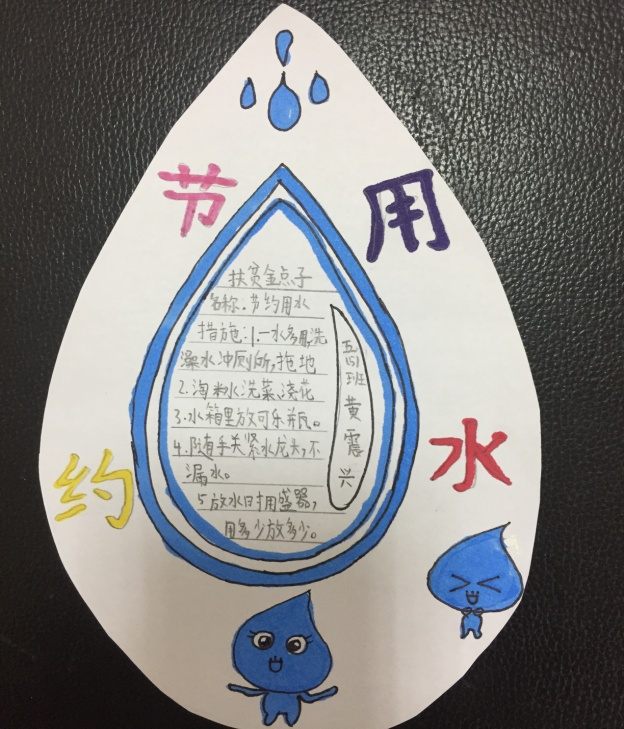 节约用水
扶贫金点子
名称:节约用水
措施:1.一水多用,洗
澡水冲厕所,拖地
2.淘米水洗菜浇花
3.水箱里放可乐瓶。
4.随手关紧水龙头,不
漏水。
5.放水时用盛器,
用多少放多少。
五(5)班黄震兴